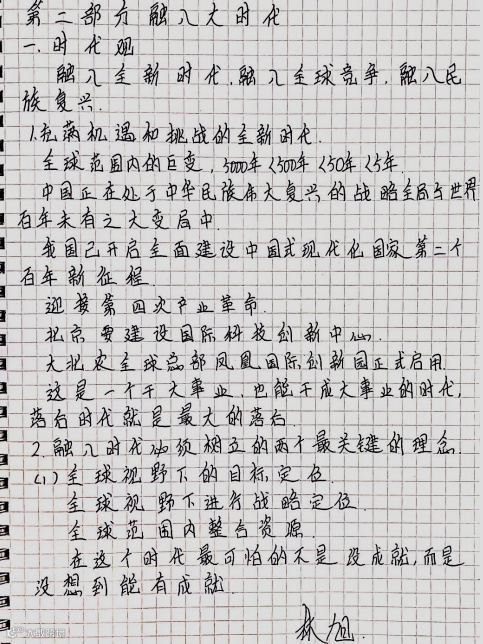 第二部分 融入大时代
一.时代观
融入全新时代,融入全球竞争,融入民
族复兴.
1.充满机遇和挑战的全新时代.
全球范围内的巨变,5000年<500年<50年<5年.
中国正在处于中华民族伟大复兴的战略全局与世界
百年未有之大变局中.
我国已开启全面建设中国式现代化国家第二个
百年新征程.
迎接第四次产业革命.
北京要建设国际科技创新中心.
大北农全球总部凤凰国际创新园正式启用.
这是一个干大事业,也能干成大事业的时代,
落后时代就是最大的落后.
2.融入时代必须树立的两个最关键的理念.
(1)全球视野下的目标定位.
全球视野下进行战略定位.
全球范围内整合资源.
在这个时代最可怕的不是没成就,而是
没想到能有成就.
林旭